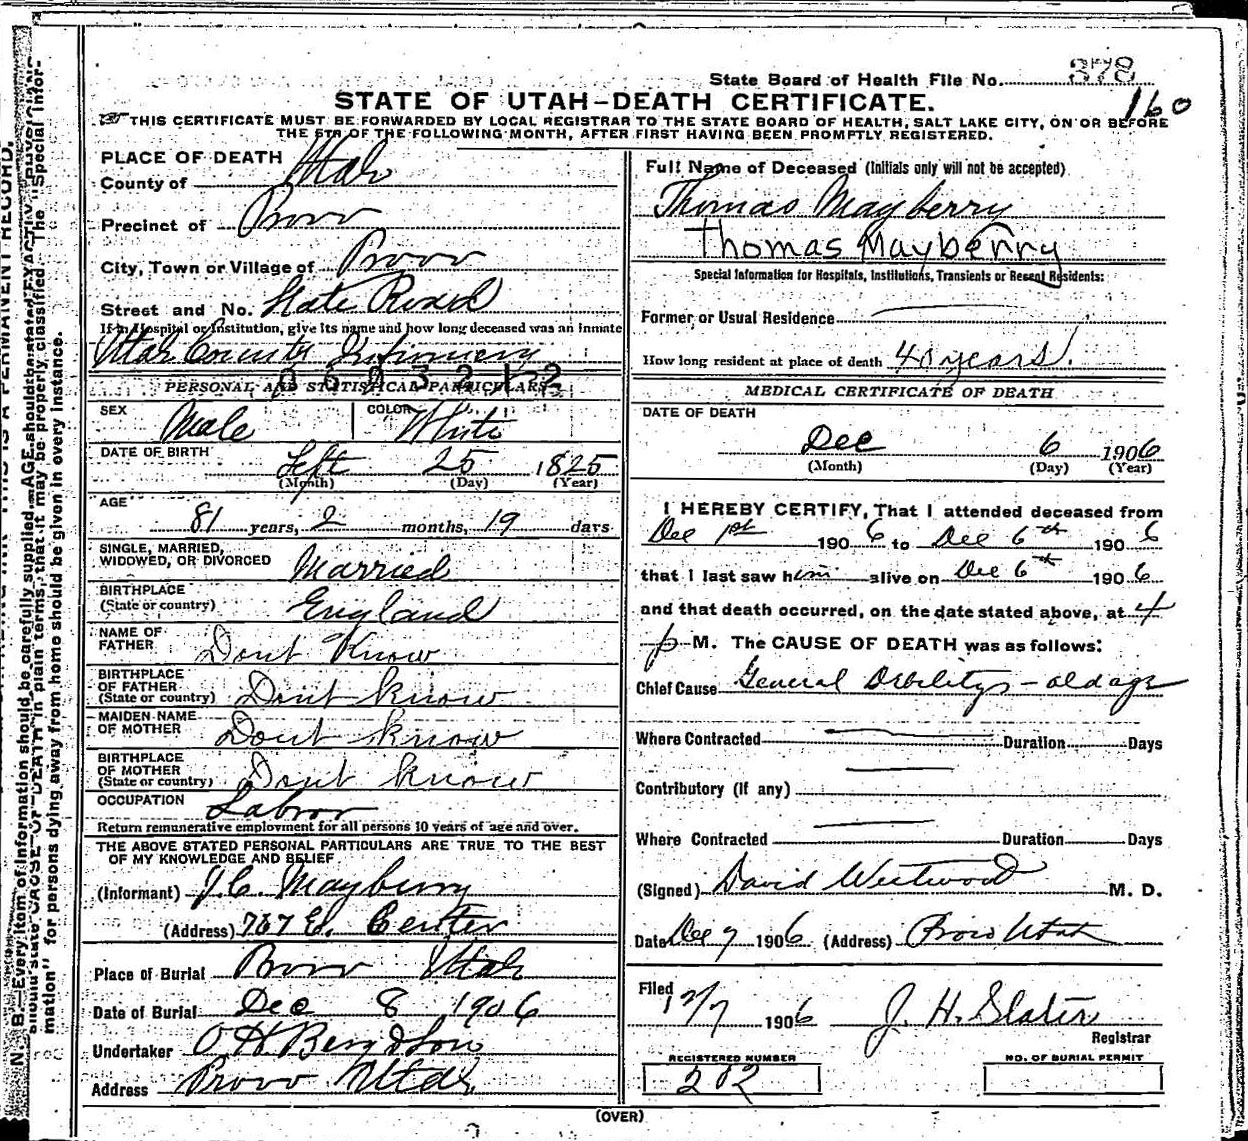 State Board of Health File No. 378
160
STATE OF UTAH—DEATH CERTIFICATE.
THIS CERTIFICATE MUST BE FORWARDED BY LOCAL REGISTRAR TO THE STATE BOARD OF HEALTH, SALT LAKE CITY, ON OR BEFORE
THE 5TH OF THE FOLLOWING MONTH, AFTER FIRST HAVING BEEN PROMPTLY REGISTERED.
PLACE OF DEATH
County of Utah
Precinct of Provo
City, Town or Village of Provo
Street and No. State Road
If in Hospital or Institution, give its name and how long deceased was an inmate
Utah County Infirmary
PERSONAL AND STATISTICAL PARTICULARS
SEX Male COLOR White
DATE OF BIRTH Sept 25 1825
(Month) (Day) (Year)
AGE 81 years, 2 months, 19 days
SINGLE, MARRIED,
WIDOWED, OR DIVORCED Married
BIRTHPLACE
(State or country) England
NAME OF
FATHER Dont Know
BIRTHPLACE
OF FATHER
(State or country) Dont know
MAIDEN NAME
OF MOTHER Dont know
BIRTHPLACE
OF MOTHER
(State or country) Dont know
OCCUPATION Labror
Return remunerative employment for all persons 10 years of age and over.
THE ABOVE STATED PERSONAL PARTICULARS ARE TRUE TO THE BEST
OF MY KNOWLEDGE AND BELIEF
(Informant) J. C. Mayberry
(Address) 767 E. Center
Place of Burial Provo Utah
Date of Burial Dec 8 1906
Undertaker O H Berg & Son
Address Provo Utah
Full Name of Deceased (Initials only will not be accepted)
Thomas Mayberry
Thomas Mayberry
Special Information for Hospitals, Institutions, Transients or Recent Residents:
Former or Usual Residence
How long resident at place of death 40 years.
MEDICAL CERTIFICATE OF DEATH
DATE OF DEATH
Dec 6 1906
(Month) (Day) (Year)
I HEREBY CERTIFY, That I attended deceased from
Dec 1st 1906 to Dec 6th 1906
that I last saw him alive on Dec 6th 1906
and that death occurred, on the date stated above, at 4
p M. The CAUSE OF DEATH was as follows:
Chief Cause General Debility - old age
Where Contracted Duration Days
Contributory (if any)
Where Contracted Duration Days
(Signed) David Westwood M. D.
Date Dec 7 1906 (Address) Provo Utah
Filed 12/7 1906 J. H. Slater
Registrar
REGISTERED NUMBER
202
NO. OF BURIAL PERMIT
(OVER)
N. B.—Every item of information should be carefully supplied. AGE should be stated EXACTLY.
should state CAUSE OF DEATH in plain terms, that it may be properly classified. The "Special Infor-
mation" for persons dying away from home should be given in every instance.